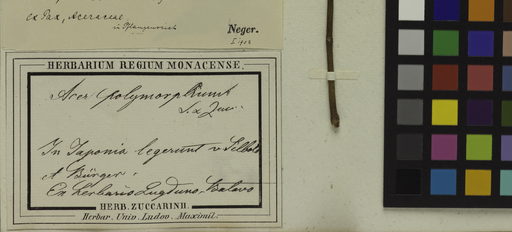 ex Pax, Aceraceae
in Pflanzenreich
Neger.
HERBARIUM REGIUM MONACENSE.
Acer polymorphum
S. & Zucc.
In Japonia legerunt v Siebold
et Bürger.
Ex herbario Lugduno Batavo
HERB. ZUCCARINII.
Herbar. Univ. Ludov. Maximil.